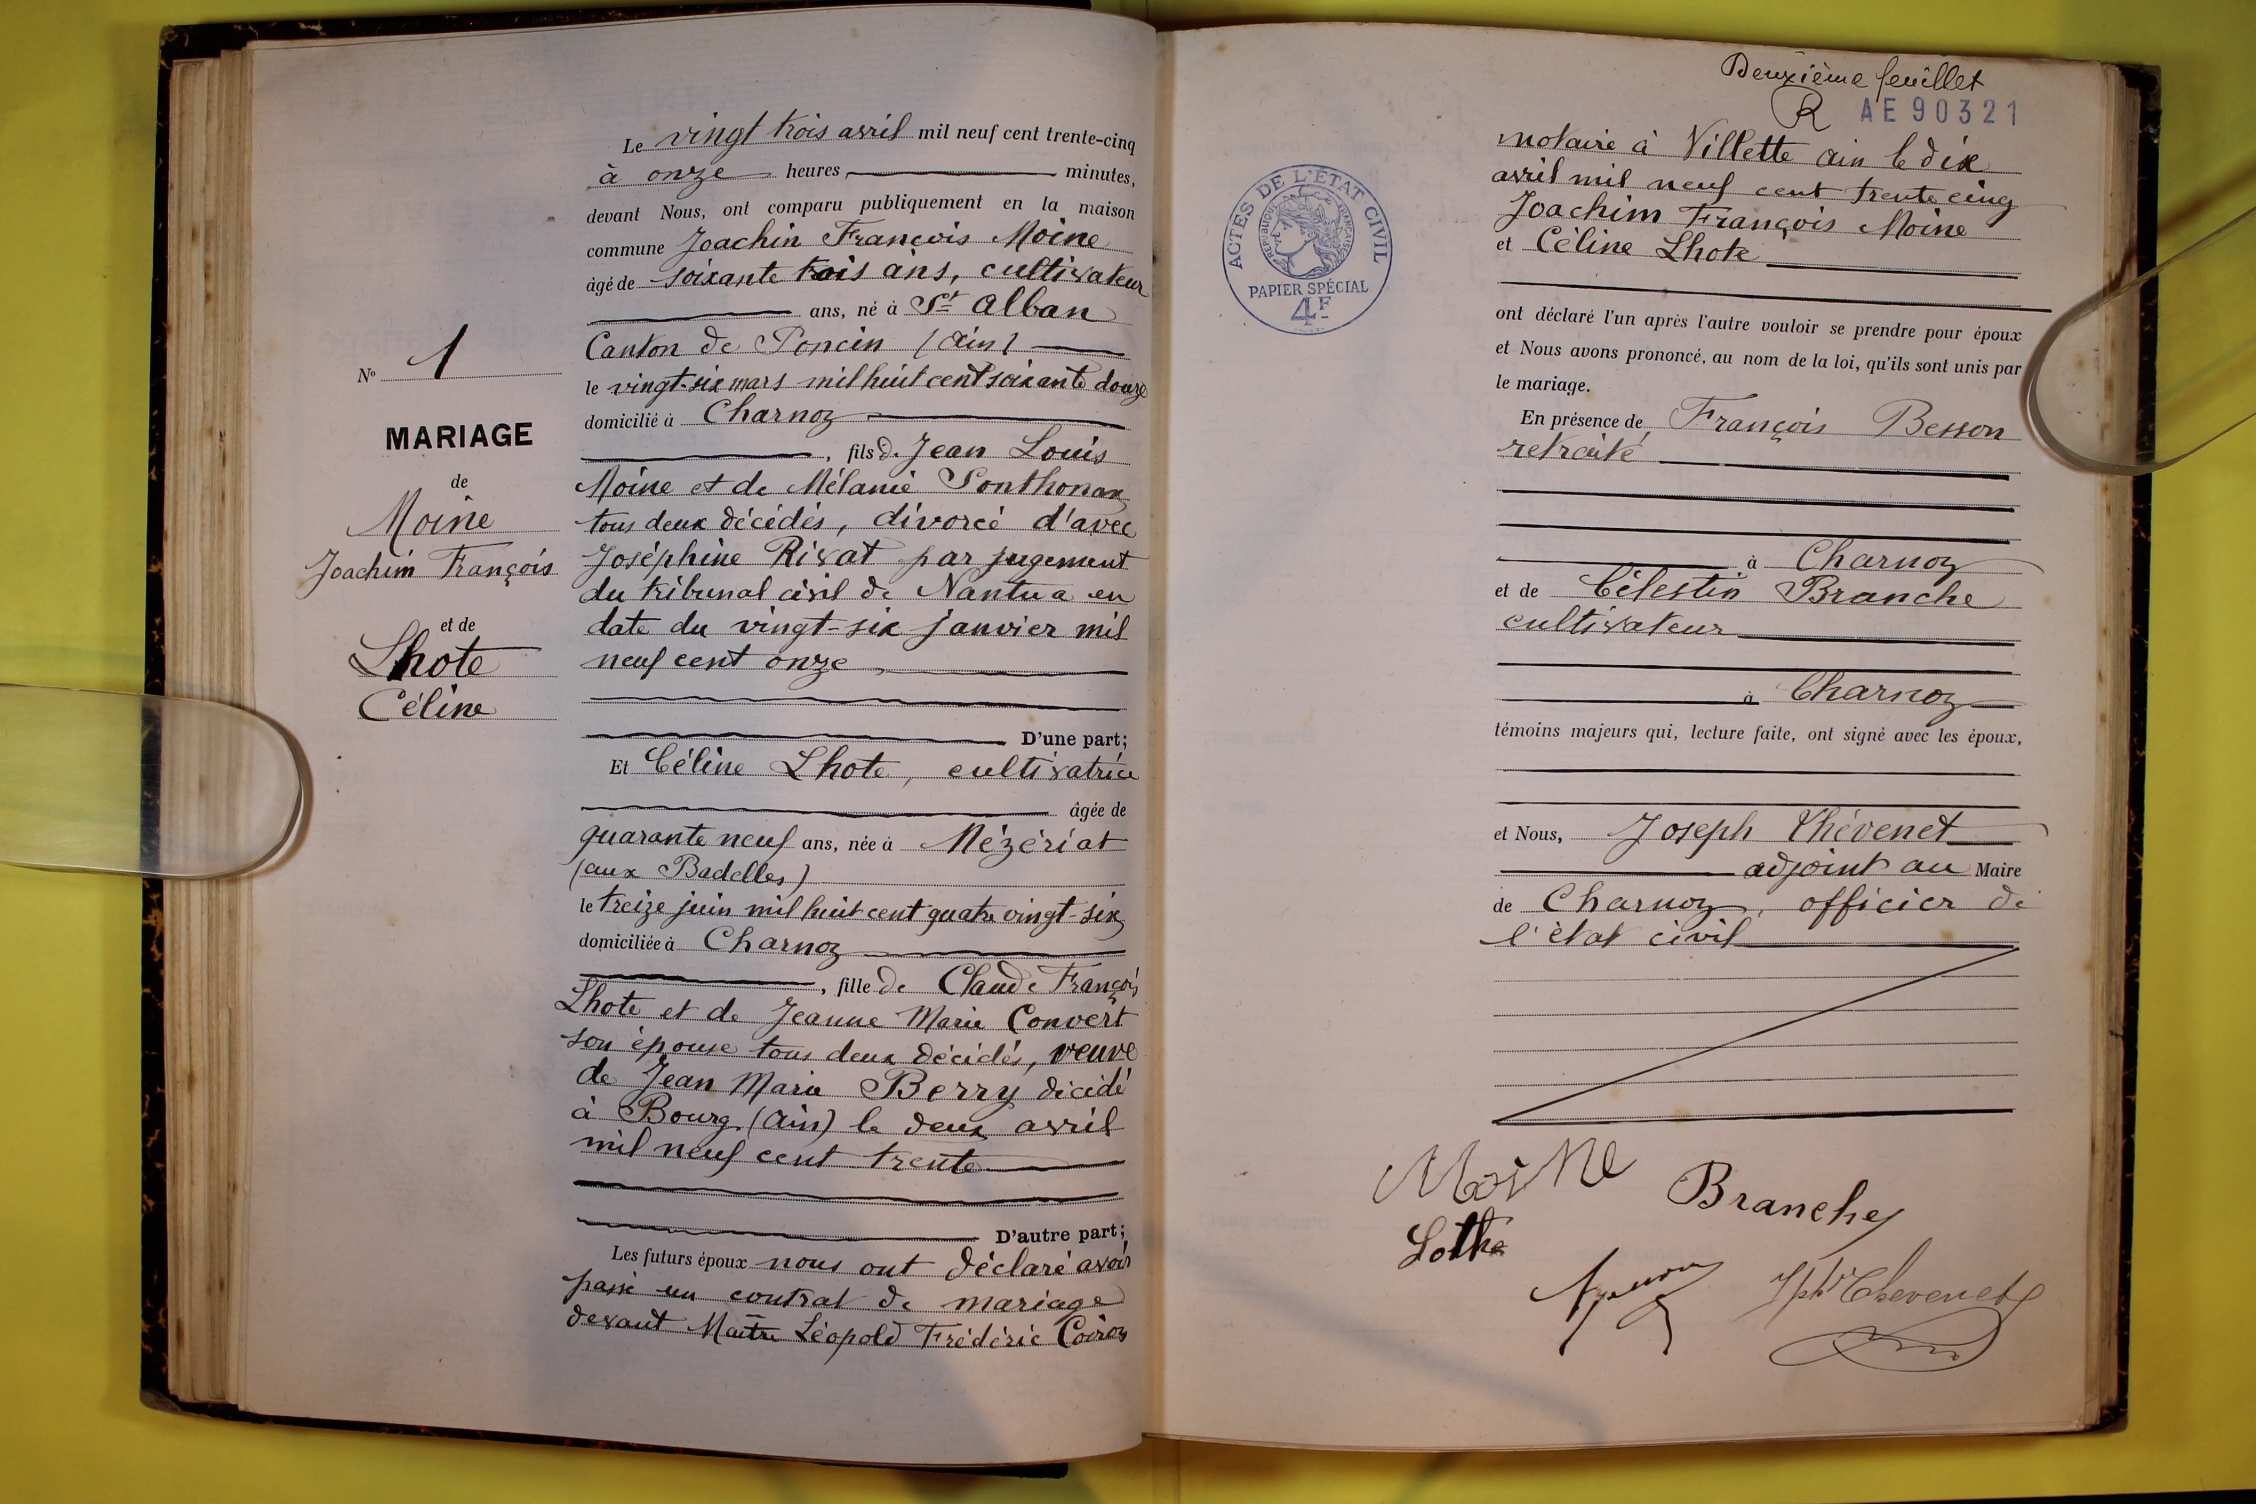 Le vingt trois avril mil neuf cent trente-cinq
à onze heures minutes,
devant Nous, ont comparu publiquement en la maison
commune Joachin François Moine
âgé de soixante trois ans, cultivateur
ans, né à St Alban
Canton de Poncin (Ain)
le vingt-six mars mil huit cent soixante douze
domicilié à Charnoz
, fils de Jean Louis
Moine et de Mélanie Ponthonax
tous deux décédés, divorcé d'avec
Joséphine Rivat par jugement
du tribunal civil de Nantua en
date du vingt-six janvier mil
neuf cent onze
D'une part;
Et Céline Lhote, cultivatrice
âgée de
quarante neuf ans, née à Mézériat
(aux Badelles)
le treize juin mil huit cent quatre vingt-six
domiciliée à Charnoz
, fille de Claude François
Lhote et de Jeanne Marie Convert
son épouse tous deux décédés, veuve
de Jean Marie Berry décédé
à Bourg (Ain) le deux avril
mil neuf cent trente
D'autre part;
Les futurs époux nous ont déclaré avoir
passé un contrat de mariage
devant Maître Léopold Frédéric Coiron
No 1
MARIAGE
de
Moine
Joachim François
et de
Lhote
Céline
Deuxième feuillet
R AE90321
ACTES DE L'ÉTAT CIVIL
RÉPUBLIQUE FRANÇAISE
PAPIER SPÉCIAL
4F
notaire à Villette Ain le dix
avril mil neuf cent trente cinq
Joachim François Moine
et Céline Lhote
ont déclaré l'un après l'autre vouloir se prendre pour époux
et Nous avons prononcé, au nom de la loi, qu'ils sont unis par
le mariage.
En présence de François Besson
retraité
à Charnoz
et de Célestin Branche
cultivateur
à Charnoz
témoins majeurs qui, lecture faite, ont signé avec les époux,
et Nous, Joseph Thévenet
adjoint au Maire
de Charnoz, officier de
l'état civil
Moine
Branche
Lothe
Jph Thevenet